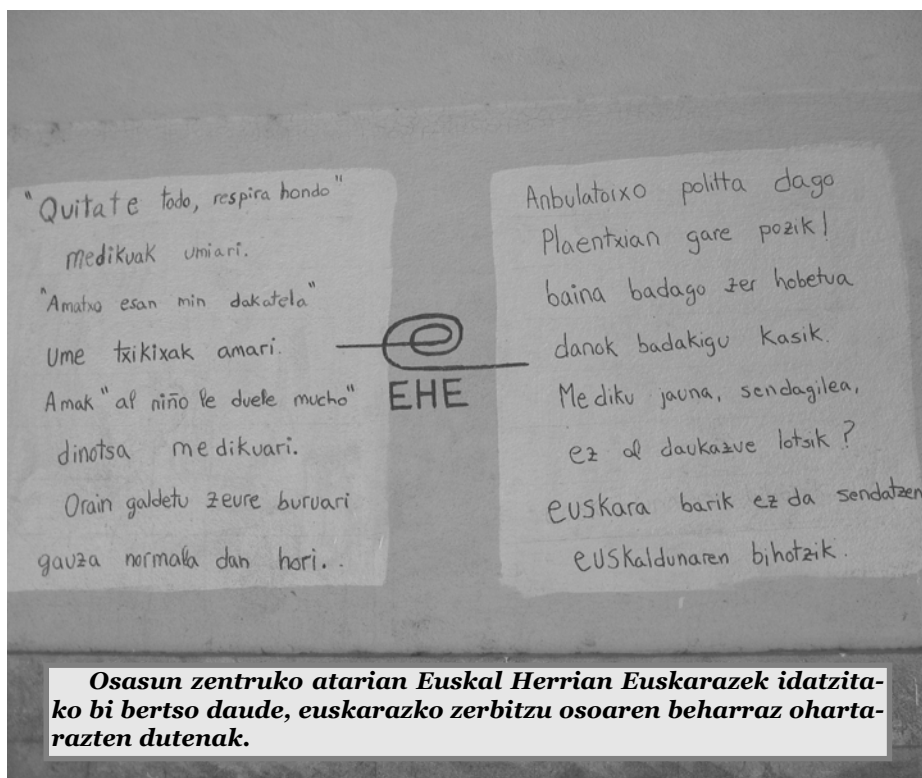 "Quitate todo, respira hondo"
medikuak umiari.
"Amatxo esan min dakatela"
Ume txikixak amari.
Amak "al niño le duele mucho"
dinotsa medikuari.
Orain galdetu zeure buruari
gauza normala dan hori..
EHE
Anbulatoixo politta dago
Plaentxian gare pozik!
baina badago zer hobetua
danok badakigu kasik.
Mediku jauna, sendagilea,
ez al daukazue lotsik?
euskara barik ez da sendatzen
euskaldunaren bihotzik.
Osasun zentruko atarian Euskal Herrian Euskarazek idatzita-
ko bi bertso daude, euskarazko zerbitzu osoaren beharraz oharta-
razten dutenak.